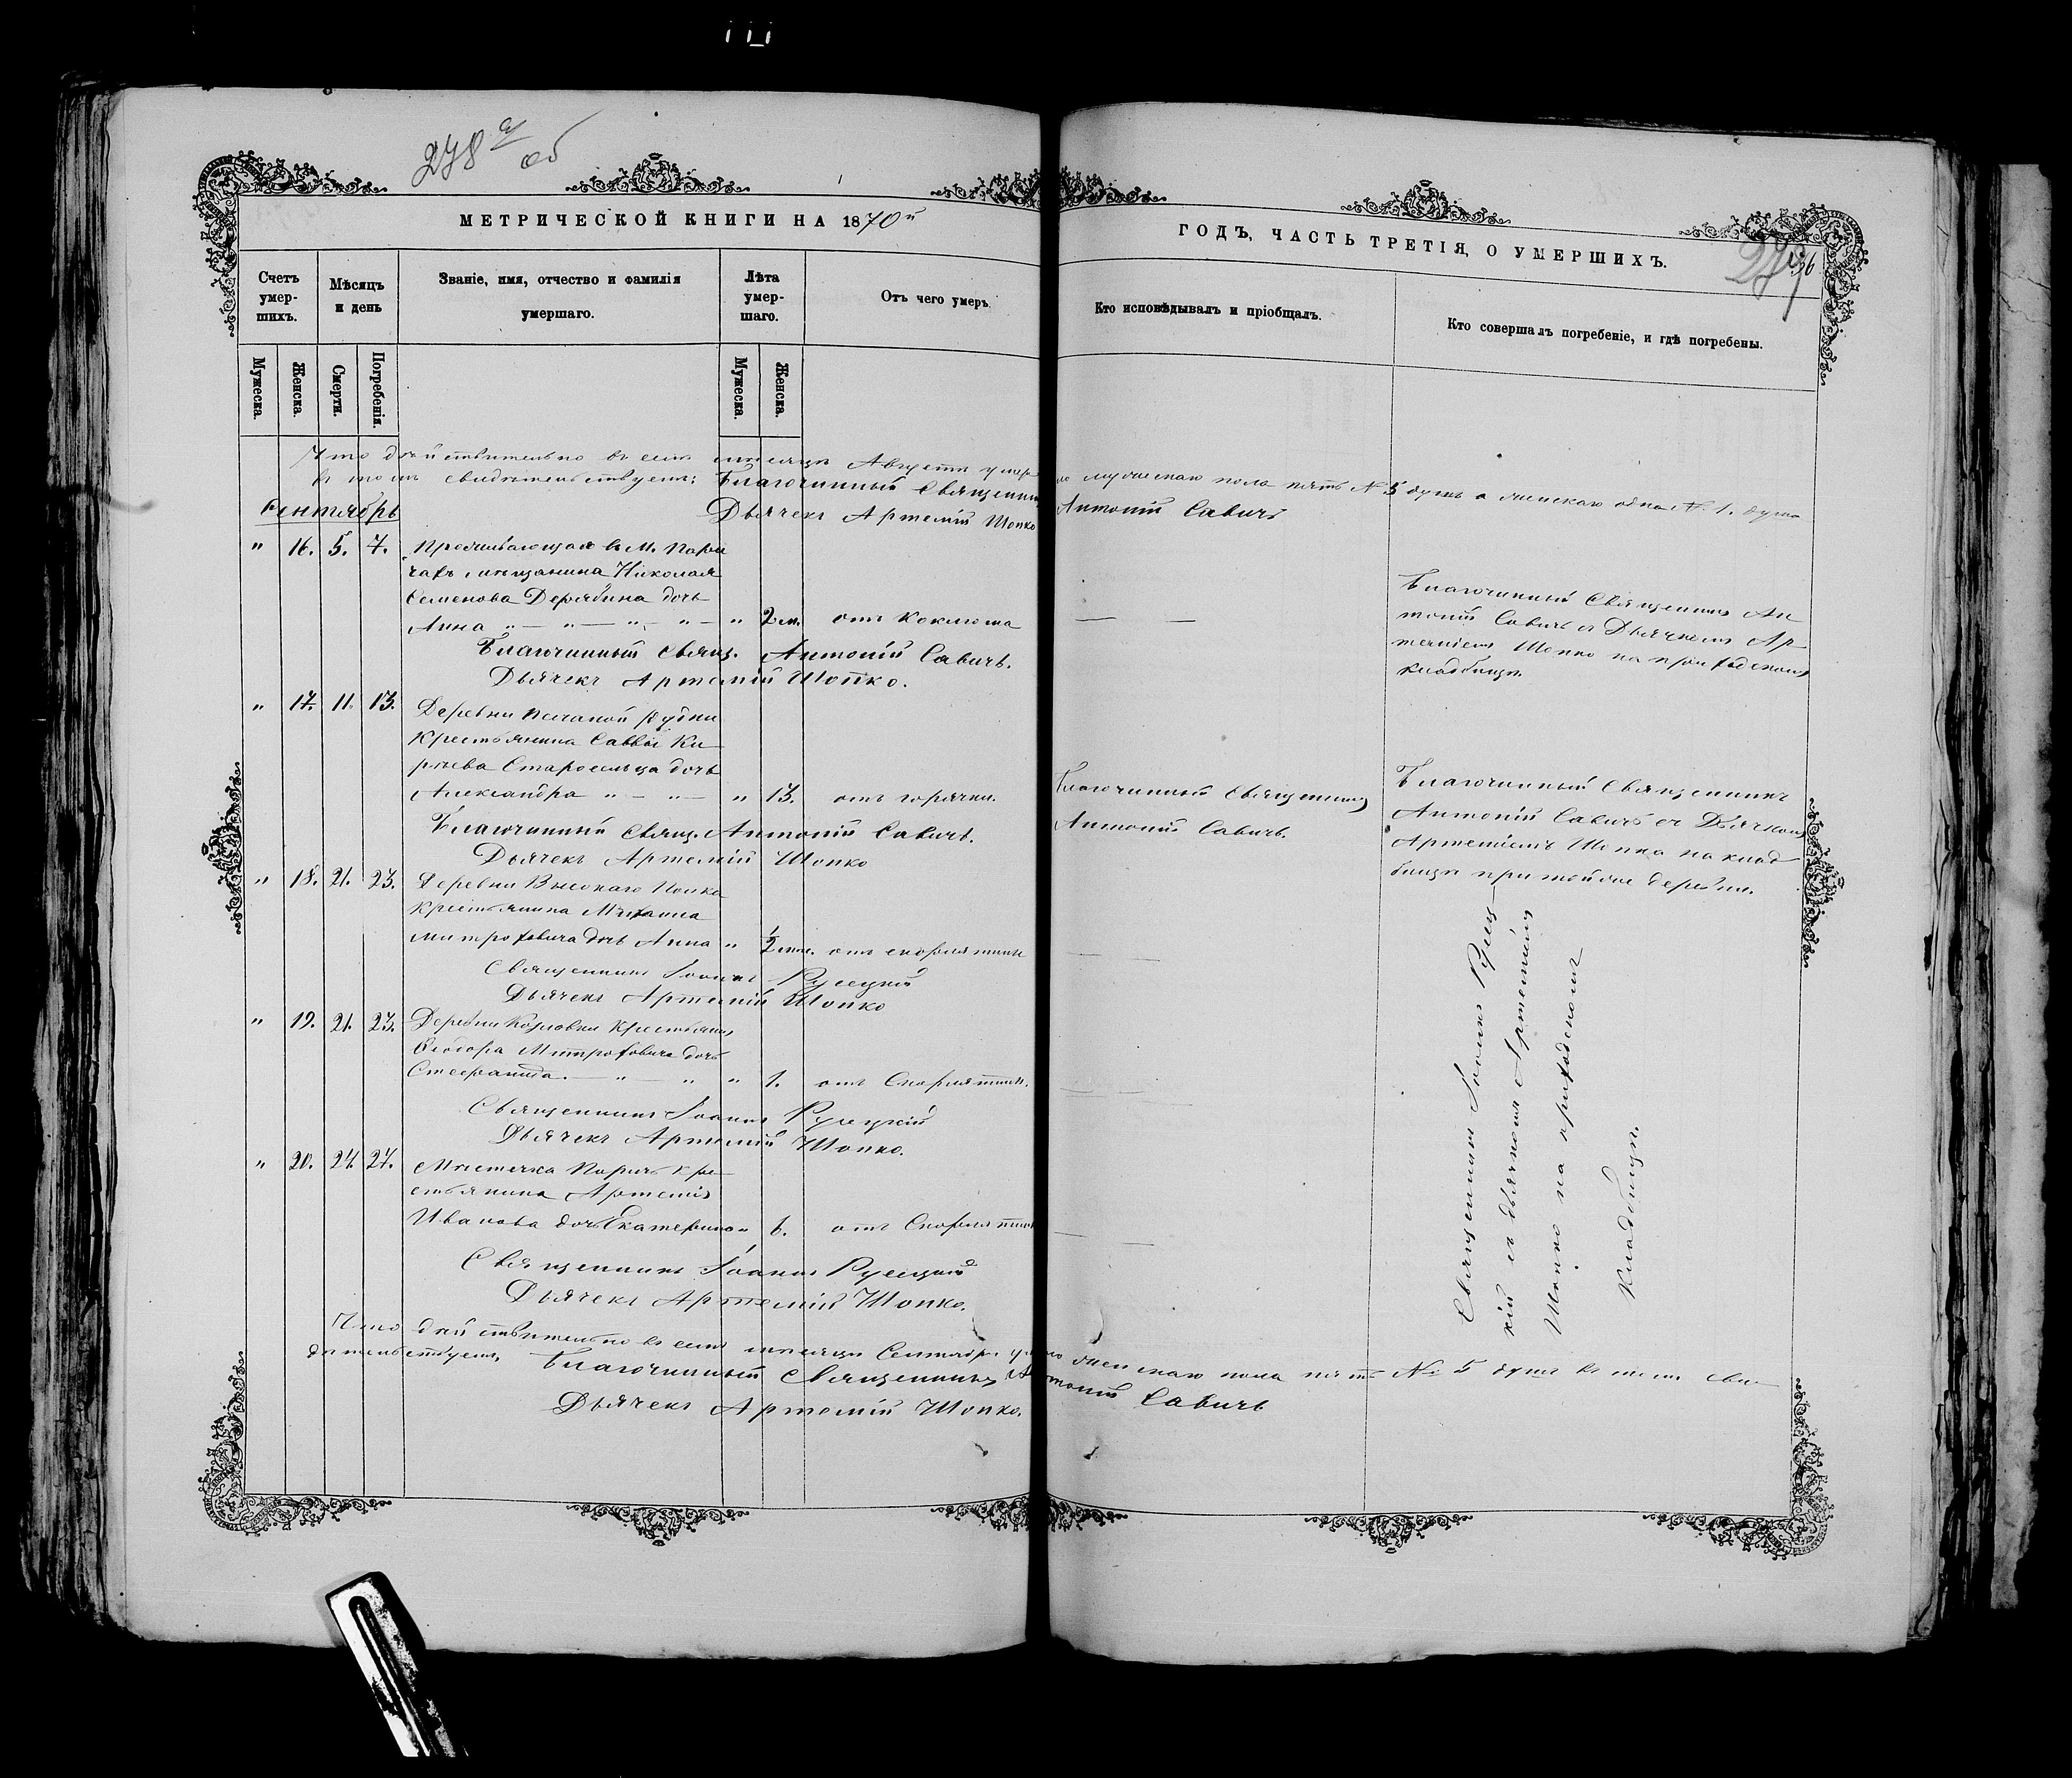 278 а/об
МЕТРИЧЕСКОЙ КНИГИ НА 1870й
ГОДЪ, ЧАСТЬ ТРЕТІЯ, О УМЕРШИХЪ.
Счетъ умер-шихъ.
Мѣсяцъ и день
Званіе, имя, отчество и фамилія
умершаго.
Лѣта умер-шаго.
Отъ чего умеръ.
Кто исповѣдывалъ и пріобщалъ.
Кто совершалъ погребеніе, и гдѣ погребены.
Мужеска.
Женска.
Смерти.
Погребенія.
Мужеска.
Женска.
Что дѣйствительно въ семъ мѣсяцѣ Августѣ умер
ло мужескаго пола пять № 5 душъ а женскаго одна № 1. душа
въ томъ свидѣтельствуемъ: Благочинный Священникъ
Антоній Савичъ
Дьячекъ Артемій Шопко
Сентябрь
" 16. 5. 7. Проживающаго въ М. Пари
чахъ мѣщанина Николая
Семенова Дерябина дочь
Анна " — " — " — " — " 2 м. отъ коклюша — —
Благочинный Свящ. Антоній Савичъ.
Дьячекъ Артемій Шопко.
Благочинный Священникъ Ан-
тоній Савичъ съ Дьячкомъ Ар-
теміемъ Шопко на приходскомъ
кладбищѣ.
" 17. 11. 13. Деревни Песчаной Рудни
крестьянина Саввы Ки-
рѣева Старосельца дочь
Александра " — " — " 13. отъ горячки.
Благочинный Свящ. Антоній Савичъ.
Дьячекъ Артемій Шопко
Благочинный Священникъ
Антоній Савичъ.
Благочинный Священникъ
Антоній Савичъ съ Дьячкомъ
Артеміемъ Шопко на клад-
бищѣ при той же деревни.
" 18. 21. 23. Деревни Высокаго Полка
крестьянина Михаила
Митроховича дочь Анна " ½ отъ скорлятины — —
Священникъ Іоаннъ Русецкій
Дьячекъ Артемій Шопко
" 19. 21. 23. Деревни Козловки крестьянина
Ѳеодора Митроховича дочь
Стефанида. — " — " " 1. отъ Скорлятины. — —
Священникъ Іоаннъ Русецкій
Дьячекъ Артемій Шопко.
" 20. 24. 27. Мѣстечка Паричъ кре-
стьянина Артемія
Иванова дочь Екатерина " 6. отъ Скорлятины — —
Священникъ Іоаннъ Русецкій
Дьячекъ Артемій Шопко.
Священникъ Іоаннъ Русец-
кій съ дьячкомъ Артеміемъ
Шопко на приходскомъ
кладбищѣ.
Что дѣйствительно въ семъ мѣсяцѣ Сентябрѣ умерло женскаго пола пять № 5 душъ въ томъ сви-
дѣтельствуемъ, Благочинный Священникъ Антоній Савичъ
Дьячекъ Артемій Шопко.